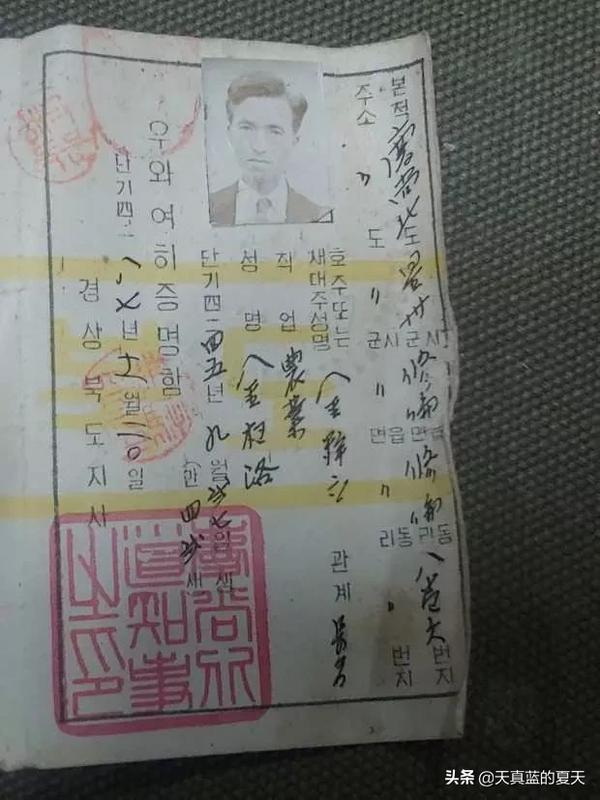 본적 慶尙北도 星州군 修倫면 修倫동 번지
주소 〃 도 〃 시군 〃 읍면 〃 리동 〃 번지
호주또는
세대주성명 金 관계 長男
직업 農業
성명 金 洛
단기四二四五년 九월 七일생
만四 세
우와여히증명함
단기四二八七년十一월二〇일
경상북도지사
慶尙北道知事之印
头条 @天真蓝的夏天